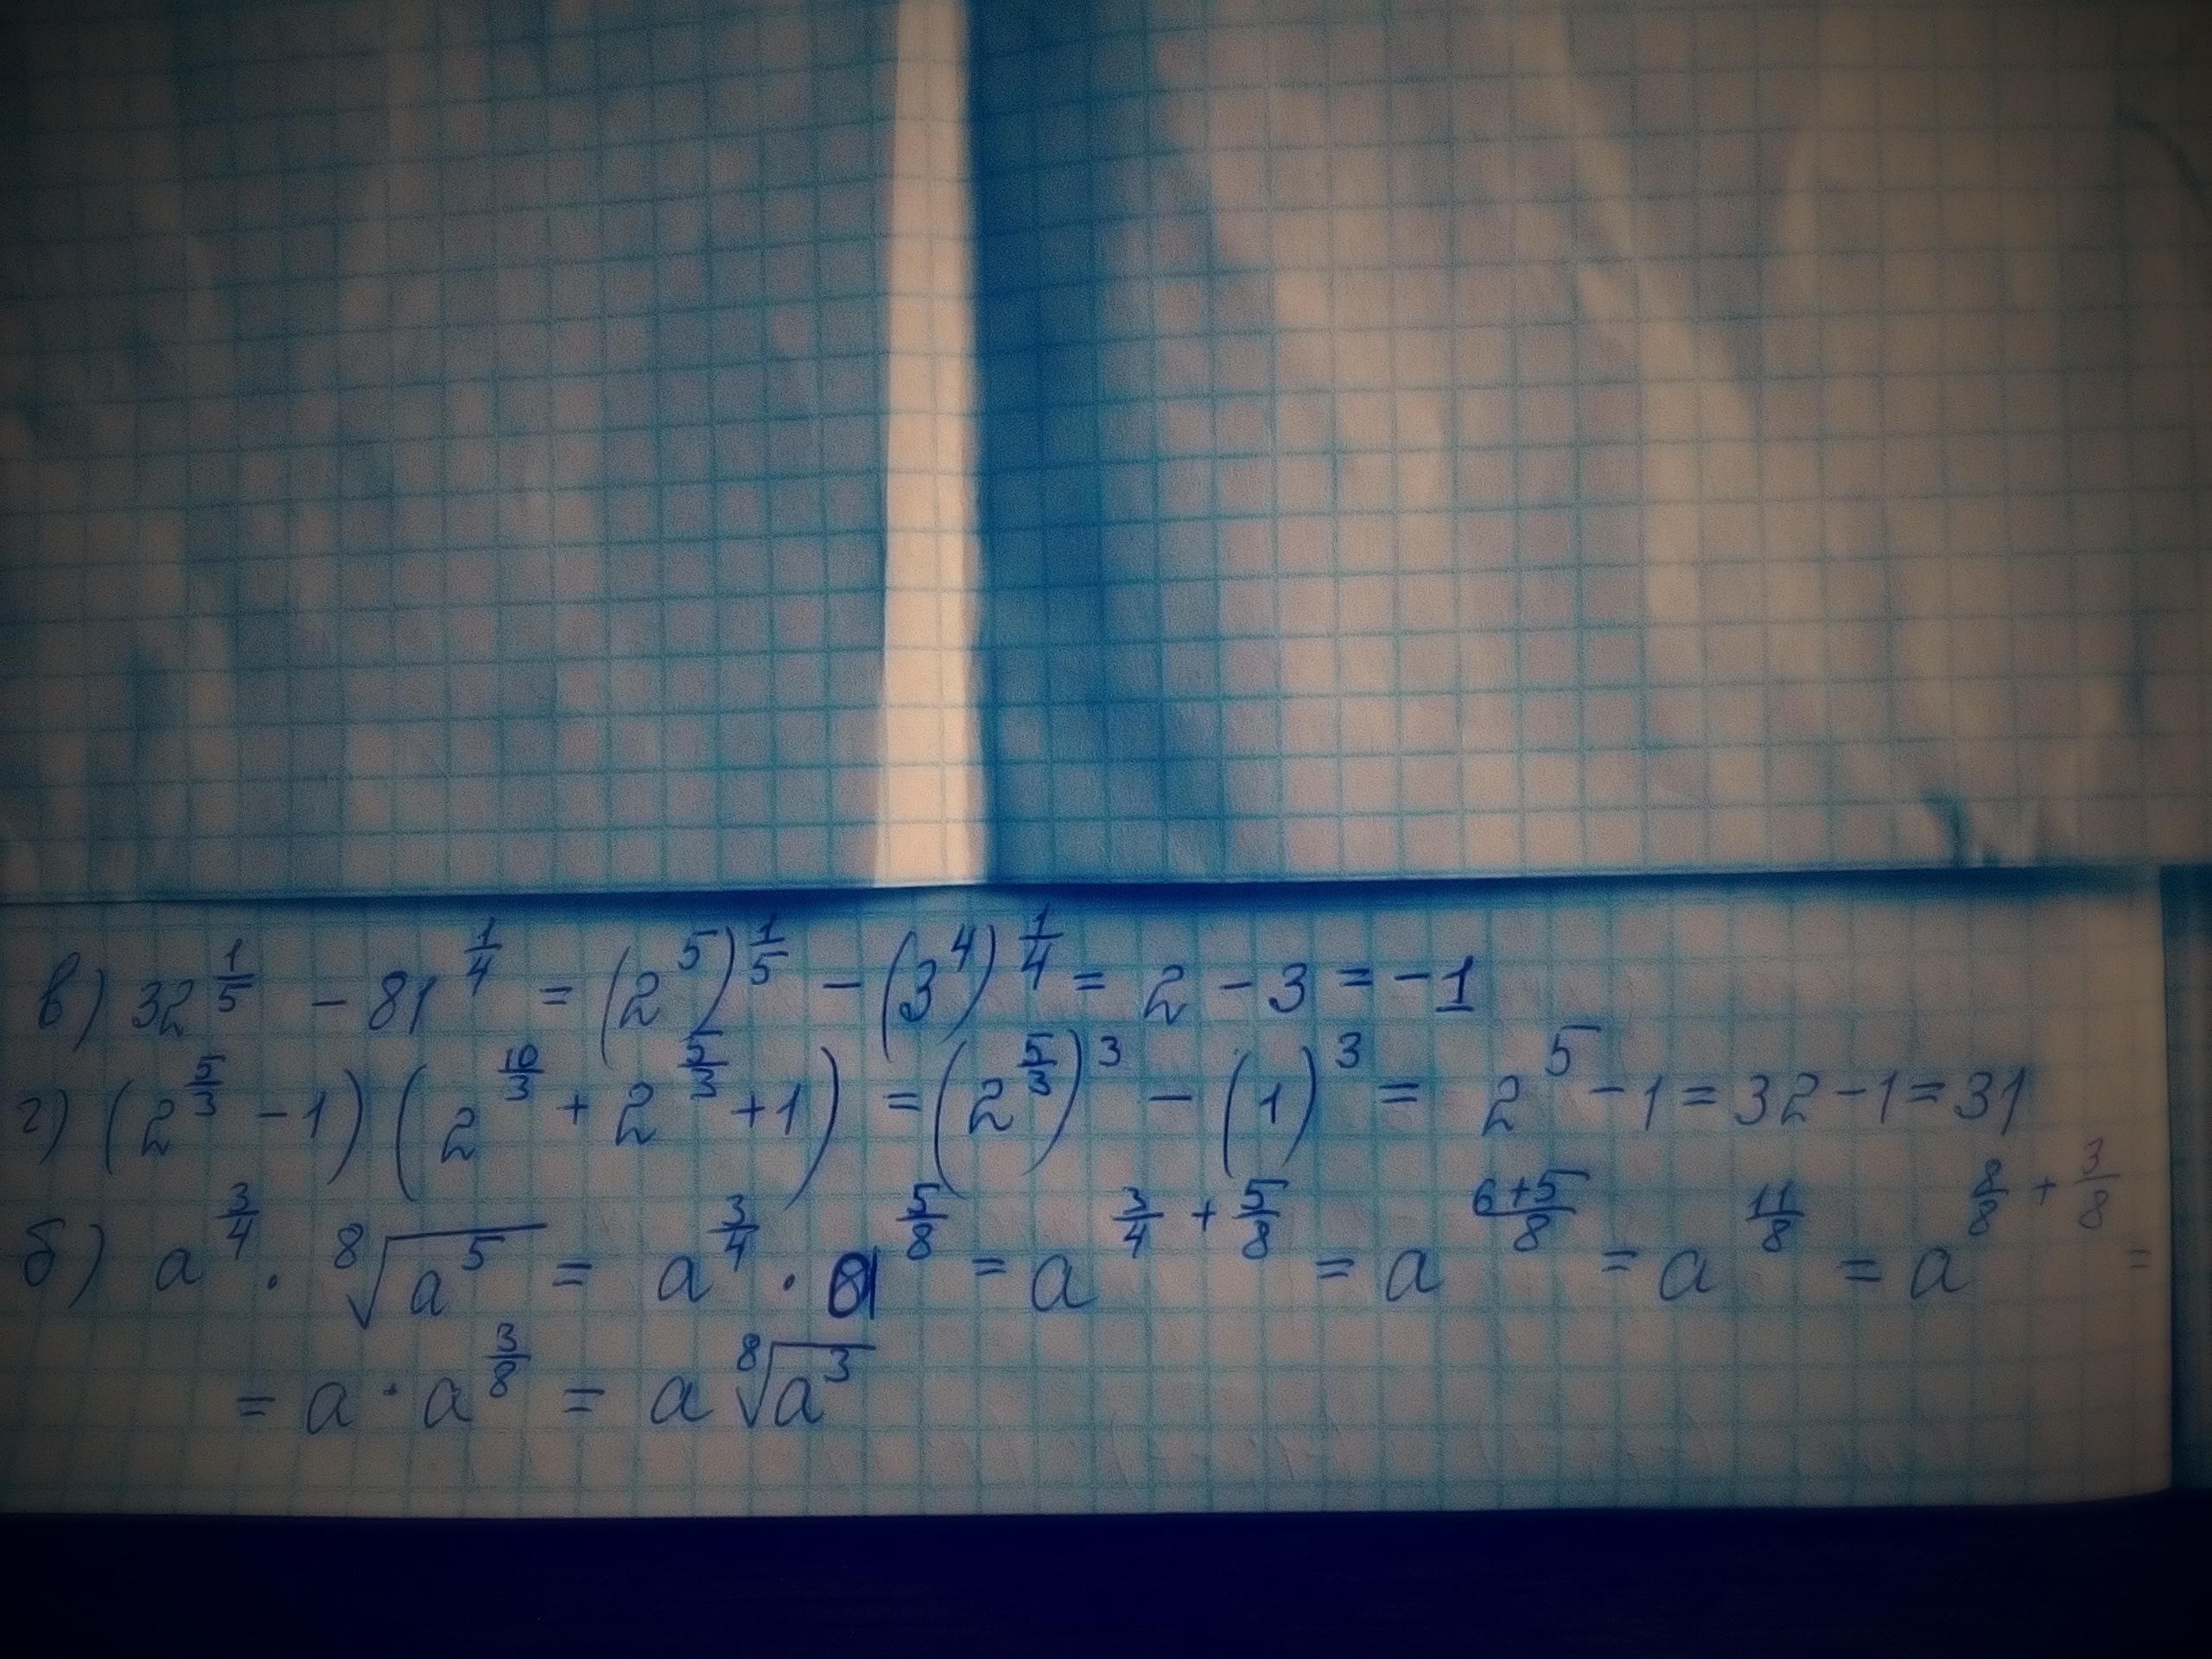 в) 32^(1/5) - 81^(1/4) = (2^5)^(1/5) - (3^4)^(1/4) = 2 - 3 = -1
г) (2^(5/3) - 1)(2^(10/3) + 2^(5/3) + 1) = (2^(5/3))^3 - (1)^3 = 2^5 - 1 = 32 - 1 = 31
б) a^(3/4) · ⁸√(a^5) = a^(3/4) · a^(5/8) = a^(3/4 + 5/8) = a^((6+5)/8) = a^(11/8) = a^(8/8 + 3/8) =
= a · a^(3/8) = a ⁸√(a^3)